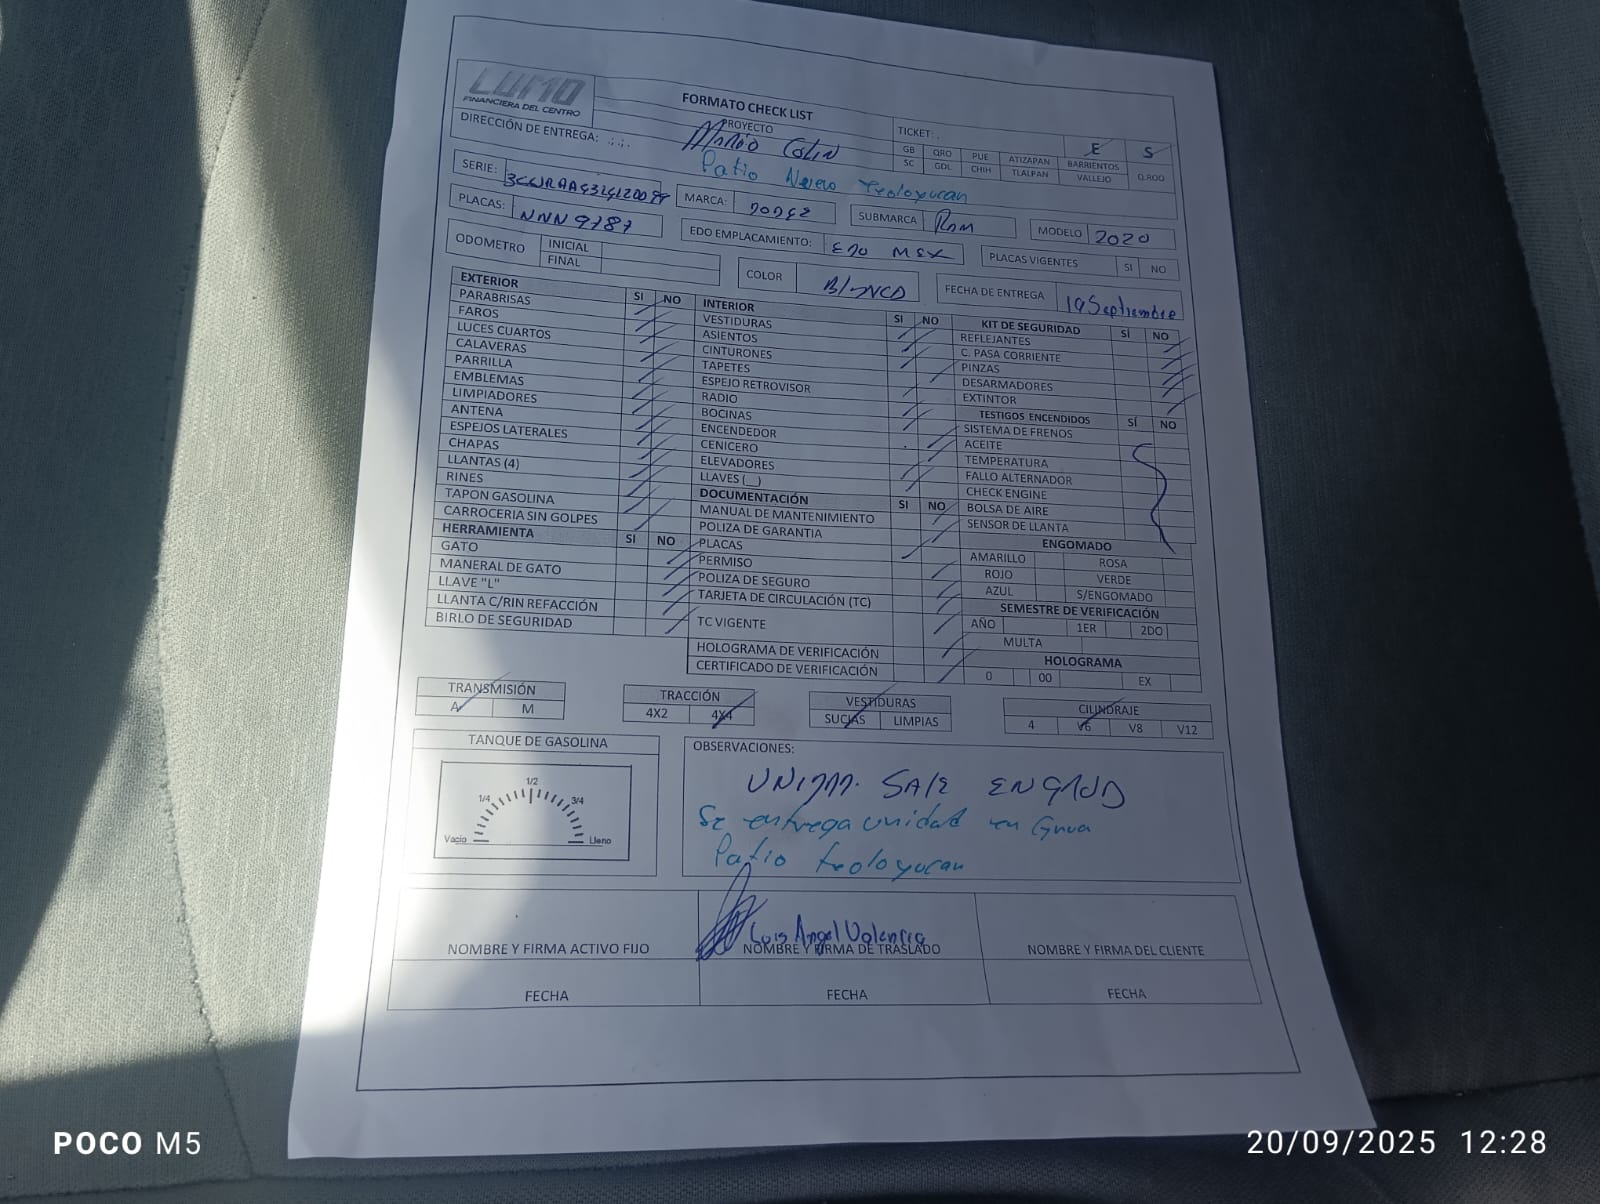 LUMO
FINANCIERA DEL CENTRO
FORMATO CHECK LIST
PROYECTO
Mario Colin
Patio Nuevo Teoloyucan
DIRECCIÓN DE ENTREGA:
TICKET:
E S
GB QRO PUE ATIZAPAN BARRIENTOS Q.ROO
SC GDL CHIH TLALPAN VALLEJO
SERIE:
MARCA: DODGE
SUBMARCA Ram
MODELO 2020
PLACAS: NNN 9787
EDO EMPLACAMIENTO: EDO MEX
PLACAS VIGENTES SI NO
ODOMETRO INICIAL
FINAL
COLOR Blanco
FECHA DE ENTREGA 19 Septiembre
EXTERIOR SI NO
PARABRISAS
FAROS
LUCES CUARTOS
CALAVERAS
PARRILLA
EMBLEMAS
LIMPIADORES
ANTENA
ESPEJOS LATERALES
CHAPAS
LLANTAS (4)
RINES
TAPON GASOLINA
CARROCERIA SIN GOLPES
HERRAMIENTA SI NO
GATO
MANERAL DE GATO
LLAVE "L"
LLANTA C/RIN REFACCIÓN
BIRLO DE SEGURIDAD
INTERIOR SI NO
VESTIDURAS
ASIENTOS
CINTURONES
TAPETES
ESPEJO RETROVISOR
RADIO
BOCINAS
ENCENDEDOR
CENICERO
ELEVADORES
LLAVES (__)
DOCUMENTACIÓN SI NO
MANUAL DE MANTENIMIENTO
POLIZA DE GARANTIA
PLACAS
PERMISO
POLIZA DE SEGURO
TARJETA DE CIRCULACIÓN (TC)
TC VIGENTE
HOLOGRAMA DE VERIFICACIÓN
CERTIFICADO DE VERIFICACIÓN
KIT DE SEGURIDAD SÍ NO
REFLEJANTES
C. PASA CORRIENTE
PINZAS
DESARMADORES
EXTINTOR
TESTIGOS ENCENDIDOS SÍ NO
SISTEMA DE FRENOS
ACEITE
TEMPERATURA
FALLO ALTERNADOR
CHECK ENGINE
BOLSA DE AIRE
SENSOR DE LLANTA
ENGOMADO
AMARILLO ROSA
ROJO VERDE
AZUL S/ENGOMADO
SEMESTRE DE VERIFICACIÓN
AÑO 1ER 2DO
MULTA
HOLOGRAMA
0 00 EX
TRANSMISIÓN
A M
TRACCIÓN
4X2 4X4
VESTIDURAS
SUCIAS LIMPIAS
CILINDRAJE
4 V6 V8 V12
TANQUE DE GASOLINA
1/2
1/4 3/4
Vacio Lleno
OBSERVACIONES:
UNIDAD. SALE EN GRUA
Se entrega unidad en Grua
Patio teoloyucan
Luis Angel Valencia
NOMBRE Y FIRMA ACTIVO FIJO
NOMBRE Y FIRMA DE TRASLADO
NOMBRE Y FIRMA DEL CLIENTE
FECHA FECHA FECHA
POCO M5
20/09/2025 12:28